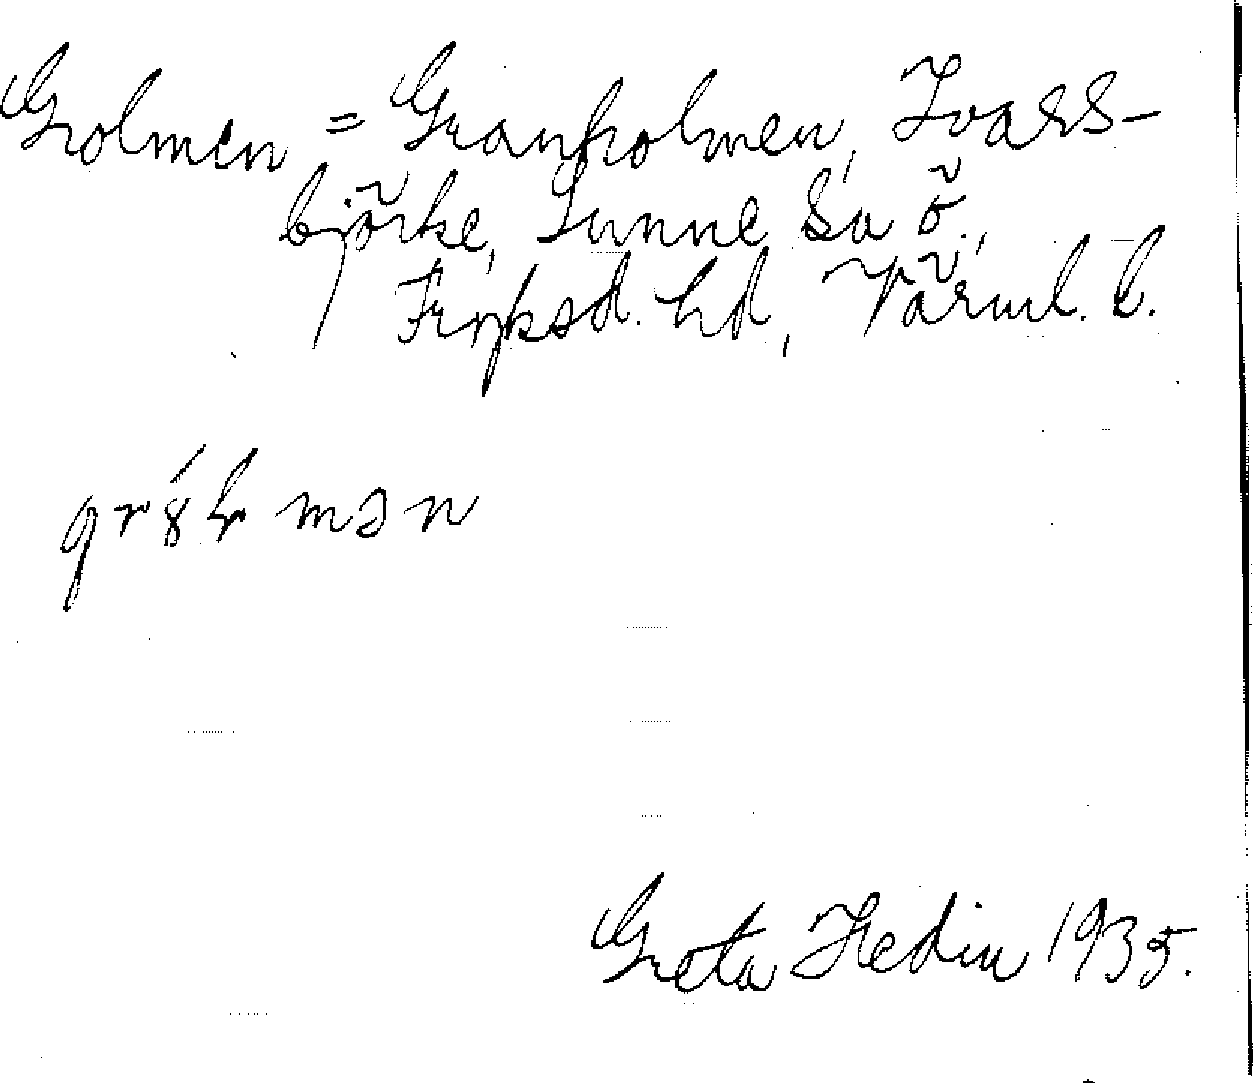 Grolmen = Granholmen, Ivars-
björke, Sunne sn ö.,
Fryksd. hd, Värml. l.
Greta Hedin 1935.